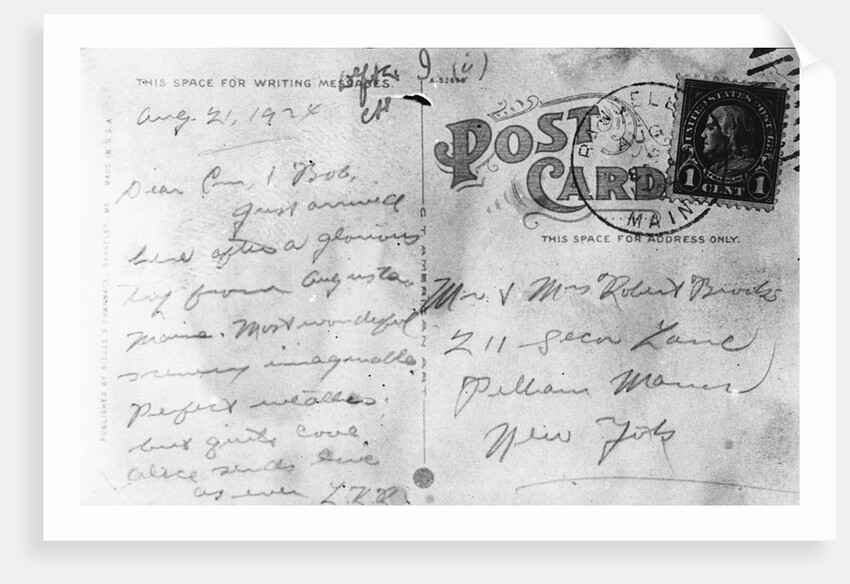 THIS SPACE FOR WRITING MESSAGES.
A-5269
Aug. 21, 1924
Dear Em, & Bob,
Just arrived
here after a glorious
trip from Augusta,
Maine. Most wonderful
scenery imaginable
Perfect weather,
but quite cool
Alice sends love
as ever L.K.R.
PUBLISHED BY RIDDLE'S PHARMACY, RANGELEY, ME. MADE IN U.S.A.
C.T. AMERICAN ART
POST
CARD
RANGELEY
AUG
MAINE
UNITED STATES POSTAGE
FRANKLIN
1 CENT 1
THIS SPACE FOR ADDRESS ONLY.
Mr & Mrs Robert Brooks
211 Secor Lane
Pelham Manor
New York